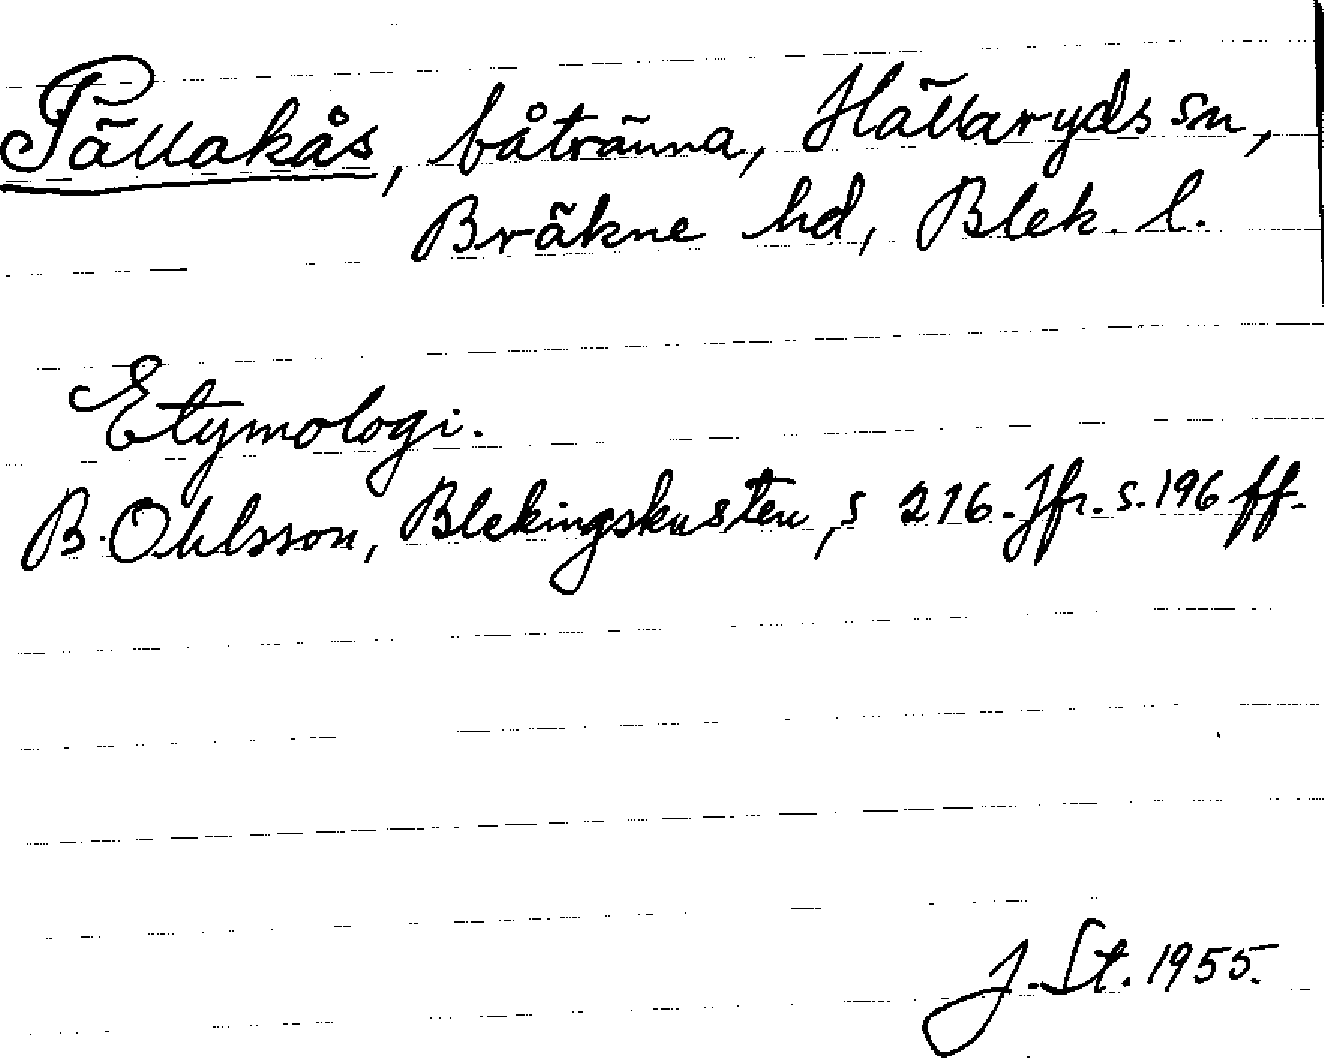 Pällakås, båtränna, Hällaryds sn,
Bräkne hd, Blek. l.
Etymologi.
B. Ohlsson, Blekingskusten, s 216. Jfr. s. 196 ff.
J. St. 1955.